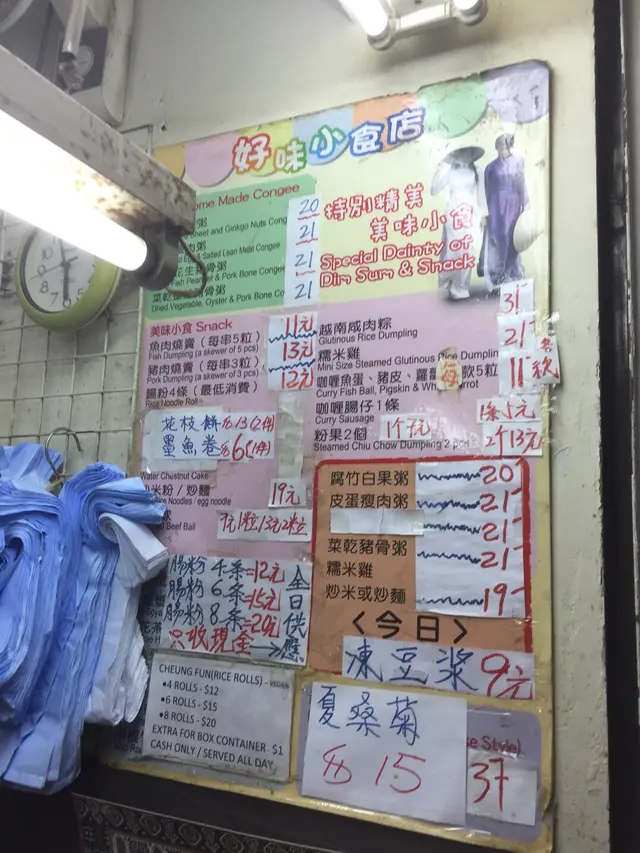 好味小食店
ome Made Congee
粥
Sheet and Ginkgo Nuts Cong
20
肉粥
& Salted Lean Meat Congee
21
花生
骨粥
Fish Pea
& Pork Bone Congee
21
菜乾
骨粥
Dried Vegetable, Oyster & Pork Bone Co
21
特別精美
美味小食
Special Dainty of
Dim Sum & Snack
美味小食 Snack
魚肉燒賣（每串5粒）
Fish Dumpling (a skewer of 5 pcs)
11元
豬肉燒賣（每串3粒）
Pork Dumpling (a skewer of 3 pcs)
13元
腸粉4條（最低消費）
Rice Noodle Rolls
12元
花枝餅 $13(2件)
墨魚卷 $6(1件)
Water Chestnut Cake
米粉 / 炒麵
Rice Noodles / egg noodle
19元
Beef Ball
7元1粒,13元2粒
腸粉4条=12元
腸粉6条=15元
腸粉8条=20元
只收現金
全日供應
CHEUNG FUN(RICE ROLLS) - VEGAN
•4 ROLLS - $12
•6 ROLLS - $15
•8 ROLLS - $20
EXTRA FOR BOX CONTAINER - $1
CASH ONLY / SERVED ALL DAY
越南咸肉粽
Glutinous Rice Dumpling
31
糯米雞
Mini Size Steamed Glutinous Rice Dumplin
21
咖喱魚蛋、豬皮、蘿
每款5粒
Curry Fish Ball, Pigskin & Wh
rrot
11
咖喱腸仔1條
Curry Sausage
1条5元
粉果2個
Steamed Chiu Chow Dumpling 2 pcs
1个7元
2个13元
腐竹白果粥 20
皮蛋瘦肉粥 21
21
菜乾豬骨粥 21
糯米雞
炒米或炒麵 19
<今日>
凍豆漿 9元
夏桑菊
$15
se Style)
37